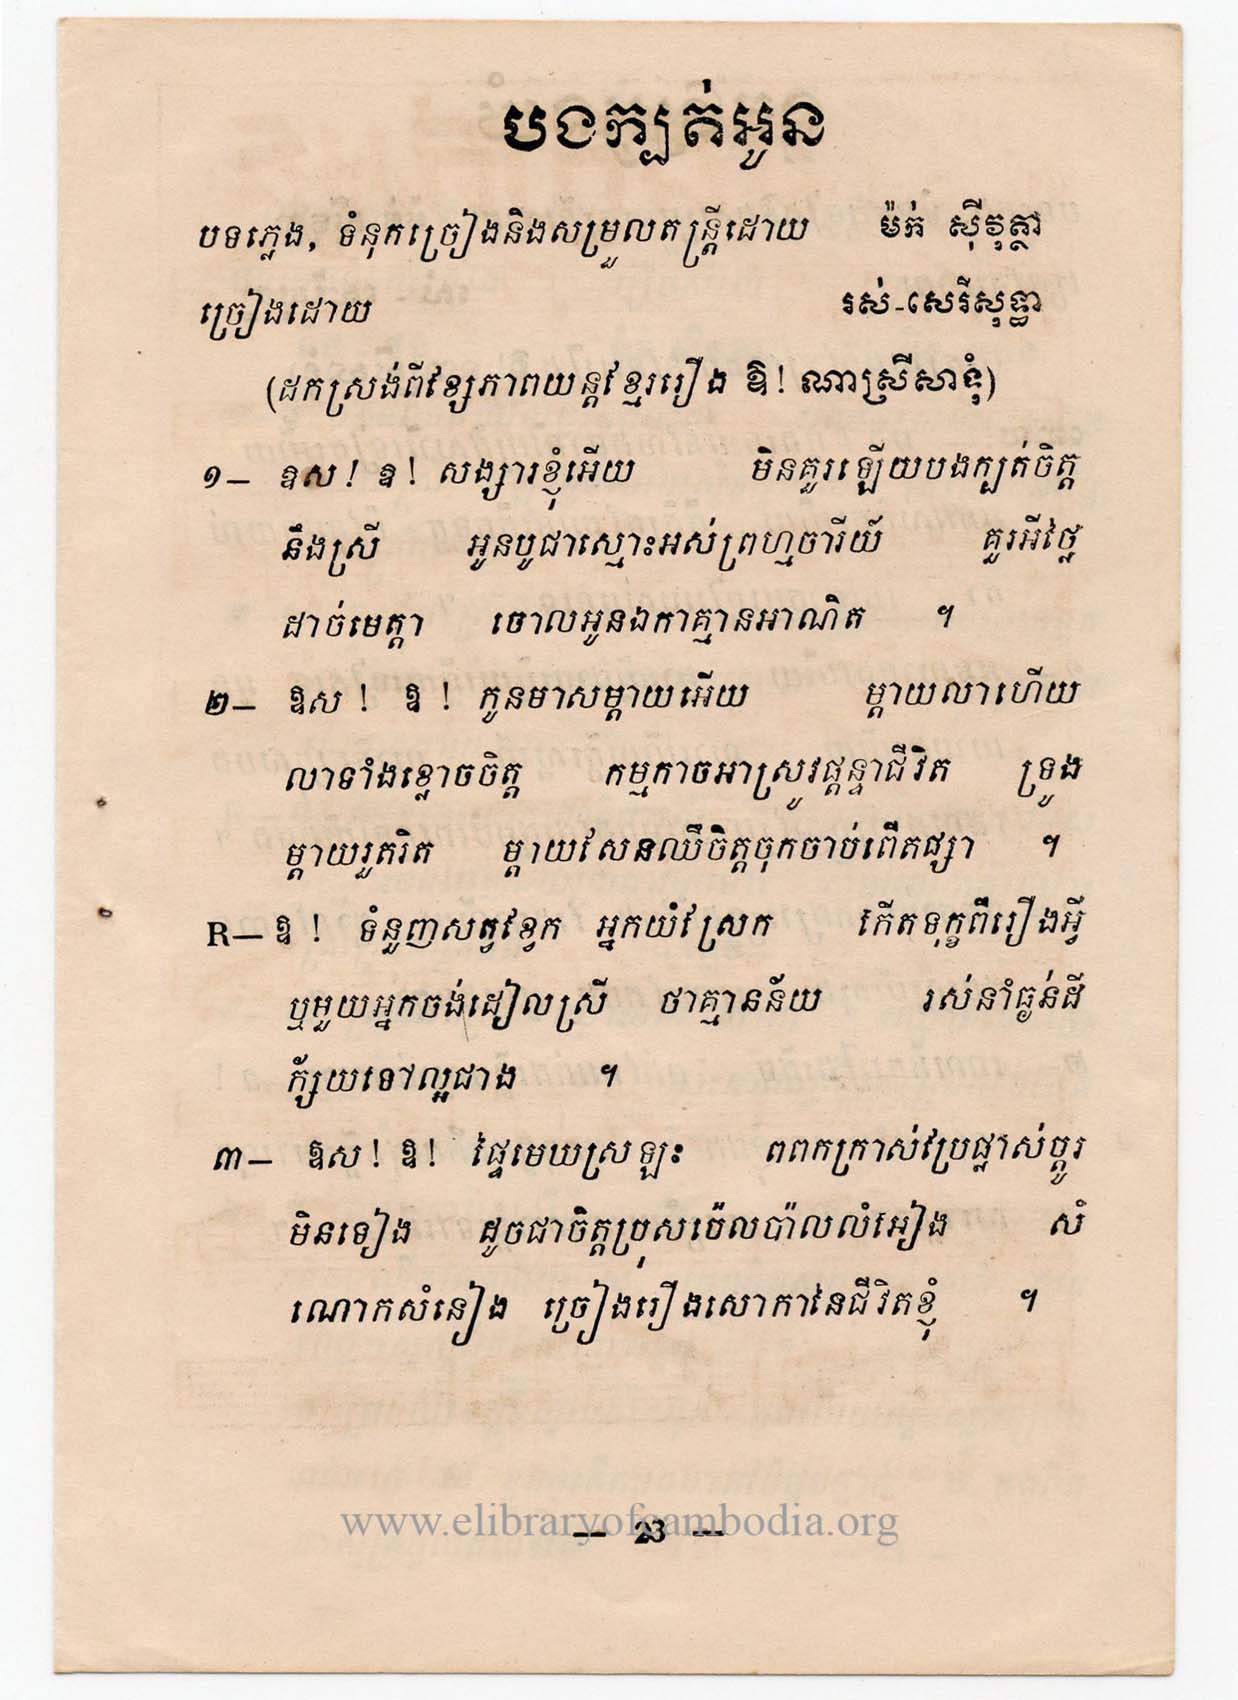 បងក្បត់អូន
បទភ្លេង, ទំនុកច្រៀងនិងសម្រួលតន្ត្រីដោយ ម៉ក់ ស៊ីវុត្ថា
ច្រៀងដោយ រស់-សេរីសុទ្ធា
(ដកស្រង់ពីខ្សែភាពយន្តខ្មែររឿង ឱ! ណាស្រីសាទុំ)
១— ឱស! ឱ! សង្សារខ្ញុំអើយ មិនគួរឡើយបងក្បត់ចិត្ត
នឹងស្រី អូនបូជាស្មោះអស់ព្រហ្មចារីយ៍ គួរអីថ្លៃ
ដាច់មេត្តា ចោលអូនឯកាគ្មានអាណិត ។
២— ឱស! ឱ! កូនមាសម្ដាយអើយ ម្ដាយលាហើយ
លាទាំងខ្លោចចិត្ត កម្មកាចអាស្រូវផ្ដន្ទាជីវិត ទ្រូង
ម្ដាយរួតរិត ម្ដាយសែនឈឺចិត្តចុកចាប់ពើតផ្សា ។
R— ឱ! ទំនួញសត្វខ្វែក អ្នកយំស្រែក កើតទុក្ខពីរឿងអ្វី
ឬមួយអ្នកចង់ដៀលស្រី ថាគ្មានន័យ រស់នាំធ្ងន់ដី
ក្ស័យទៅល្អជាង ។
៣— ឱស! ឱ! ផ្ទៃមេឃស្រឡះ ពពកក្រាស់ប្រែផ្លាស់ប្ដូរ
មិនទៀង ដូចជាចិត្តប្រុសចេលបាំលលំអៀង សំ
ណោកសំនៀង ច្រៀងរឿងសោកានៃជីវិតខ្ញុំ ។
www.elibraryofcambodia.org
— ២៣ —